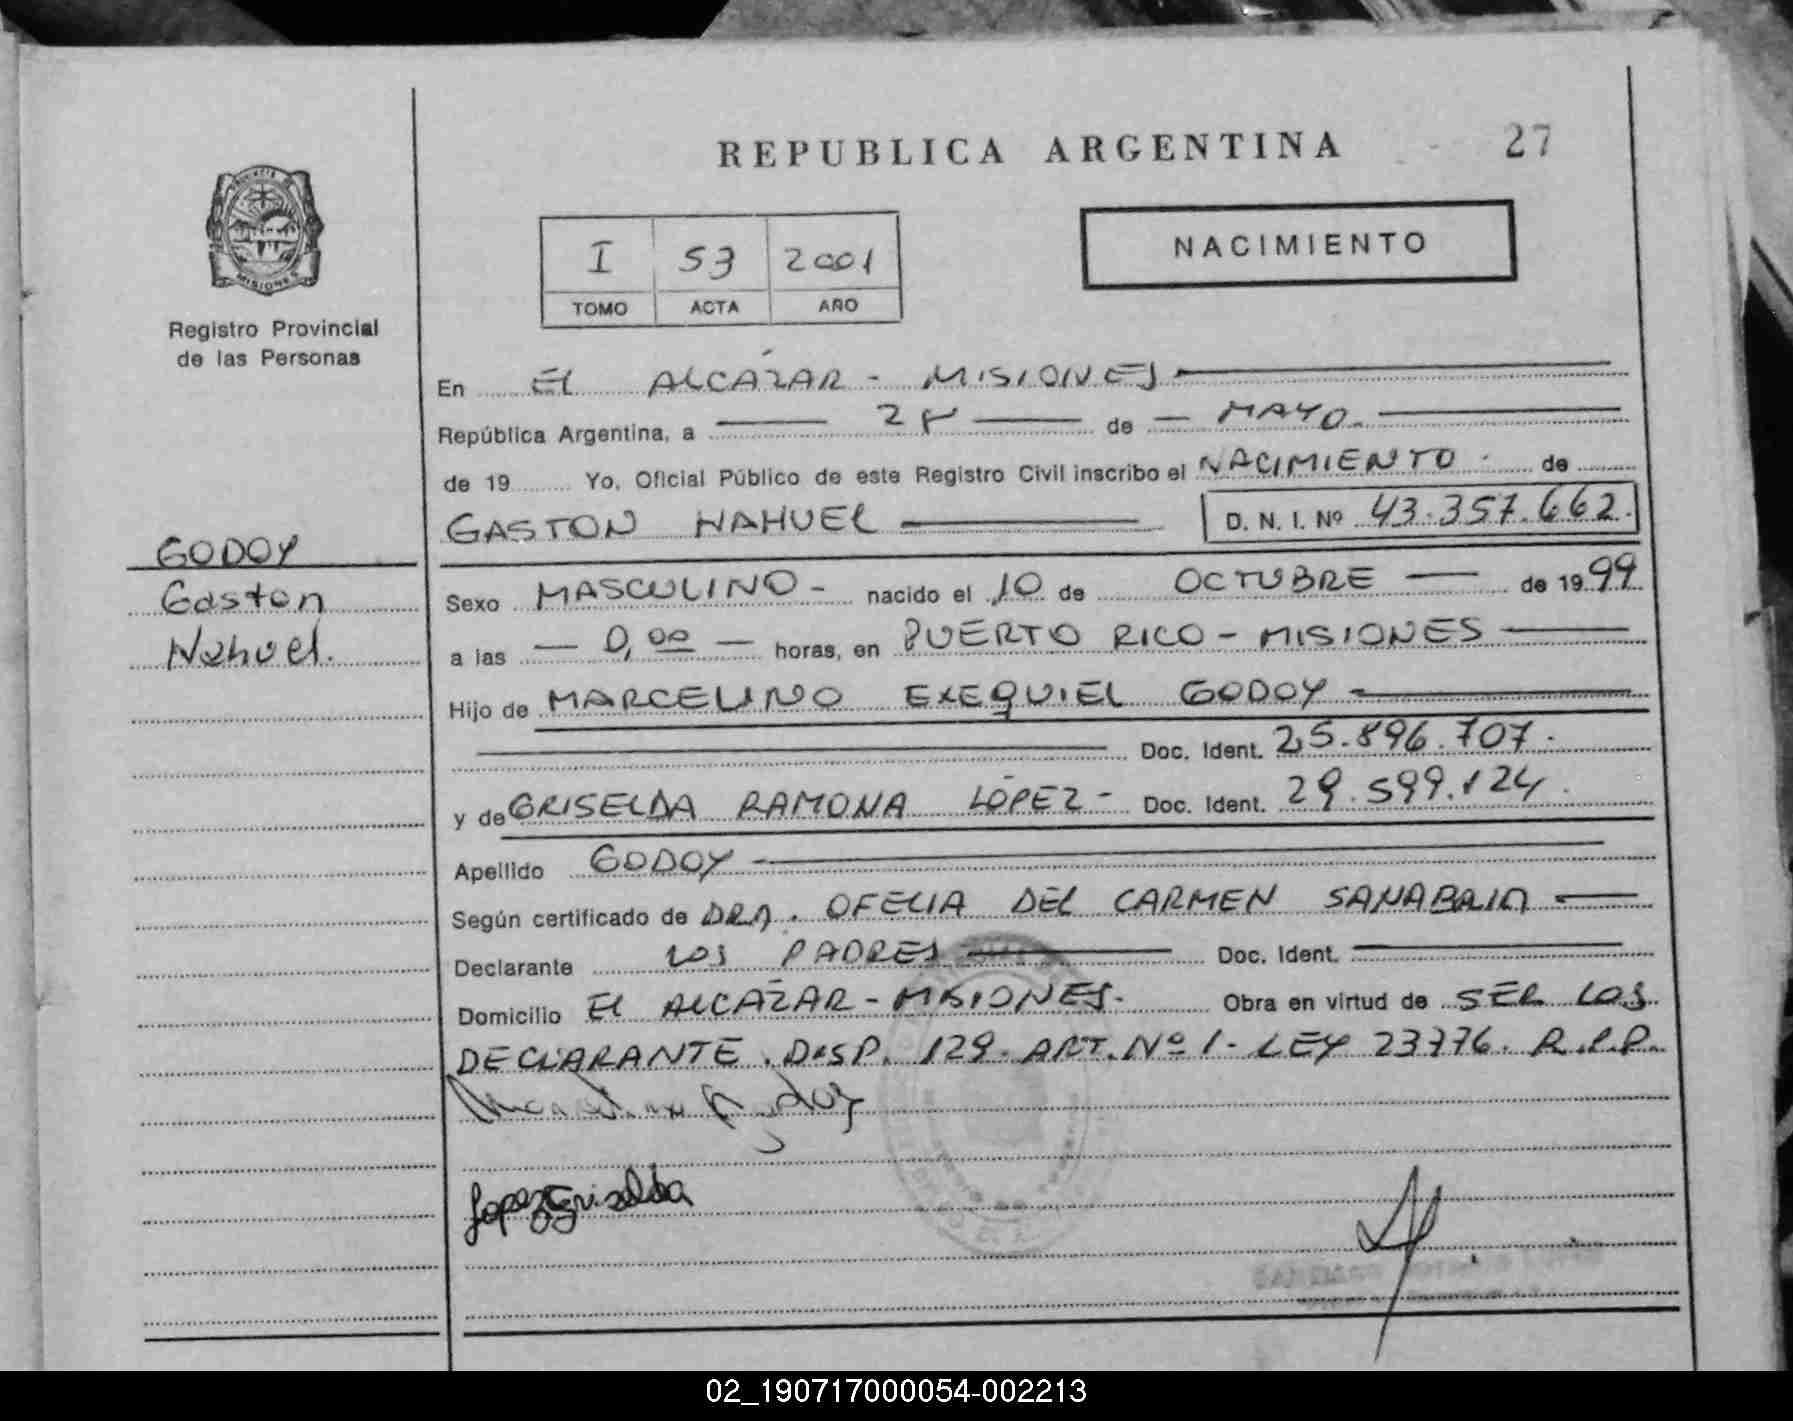 REPUBLICA ARGENTINA
27
PROVINCIA DE
MISIONES
Registro Provincial
de las Personas
I 53 2001
TOMO ACTA AÑO
NACIMIENTO
En EL ALCÁZAR - MISIONES
República Argentina, a 28 de MAYO.
de 19 Yo, Oficial Público de este Registro Civil inscribo el NACIMIENTO. de
GASTON NAHUEL D. N. I. Nº 43.357.662.
GODOY
Gaston
Nahuel.
Sexo MASCULINO - nacido el 10 de OCTUBRE de 1999
a las 0,00 horas, en PUERTO RICO - MISIONES
Hijo de MARCELINO EXEQUIEL GODOY
Doc. Ident. 25.896.707.
y de GRISELDA RAMONA LÓPEZ - Doc. Ident. 29.599.124.
Apellido GODOY
Según certificado de DRA. OFELIA DEL CARMEN SANABRIA
Declarante LOS PADRES Doc. Ident.
Domicilio EL ALCÁZAR - MISIONES. Obra en virtud de SER LOS
DECLARANTE. DISP. 129. ART. Nº 1. LEY 23776. R.P.P.
Lopez Griselda
02_190717000054-002213